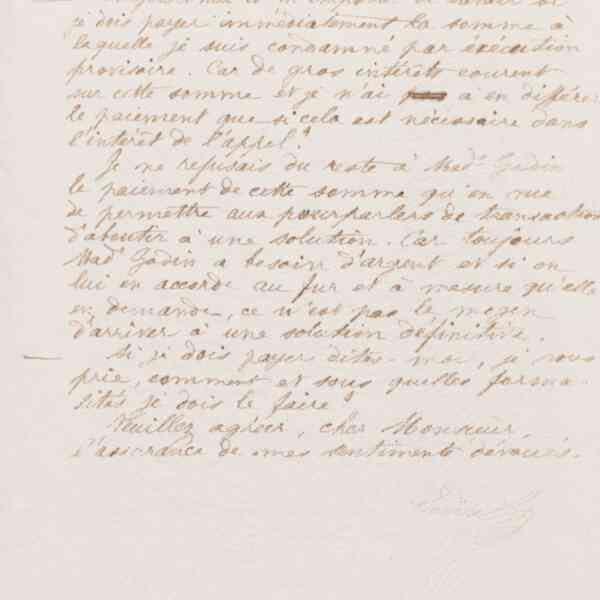 je dois payer immédiatement la somme à
laquelle je suis condamné par exécution
provisoire. Car de gros intérêts courent
sur cette somme et je n'ai à en différer
le paiement que si cela est nécessaire dans
l'intérêt de l'appel.
Je ne refusais du reste à Mad. Godin
le paiement de cette somme qu'en vue
de permettre aux pourparlers de transaction
d'aboutir à une solution. Car toujours
Mad. Godin a besoin d'argent et si on
lui en accorde au fur et à mesure qu'elle
en demande, ce n'est pas le moyen
d'arriver à une solution définitive.
Si je dois payer dites-moi, je vous
prie, comment et sous quelles forma-
lités je dois le faire?
Veuillez agréer, cher Monsieur,
l'assurance de mes sentiments dévoués.